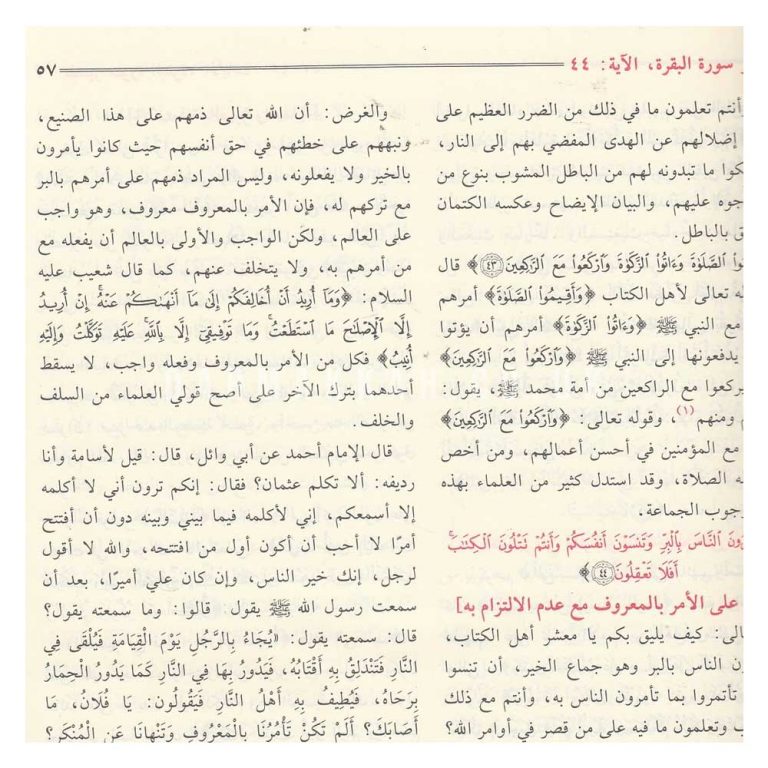 سورة البقرة، الآية: ٤٤
٥٧
وأنتم تعلمون ما في ذلك من الضرر العظيم على
إضلالهم عن الهدى المفضي بهم إلى النار،
ما تبدونه لهم من الباطل المشوب بنوع من
عليهم، والبيان الإيضاح وعكسه الكتمان
بالباطل.
الصَّلَوٰةَ وَءَاتُوا۟ الزَّكَوٰةَ وَٱرْكَعُوا۟ مَعَ ٱلرَّٰكِعِينَ ﴿٤٣﴾﴾ قال
تعالى لأهل الكتاب ﴿وَأَقِيمُوا۟ الصَّلَوٰةَ﴾ أمرهم
مع النبي ﷺ ﴿وَءَاتُوا۟ الزَّكَوٰةَ﴾ أمرهم أن يؤتوا
يدفعونها إلى النبي ﷺ ﴿وَٱرْكَعُوا۟ مَعَ ٱلرَّٰكِعِينَ﴾
يركعوا مع الراكعين من أمة محمد ﷺ، يقول:
ومنهم (١)، وقوله تعالى: ﴿وَٱرْكَعُوا۟ مَعَ ٱلرَّٰكِعِينَ﴾
مع المؤمنين في أحسن أعمالهم، ومن أخص
الصلاة، وقد استدل كثير من العلماء بهذه
الجماعة.
النَّاسَ بِٱلْبِرِّ وَتَنسَوْنَ أَنفُسَكُمْ وَأَنتُمْ نَتْلُونَ ٱلْكِتَٰبَ
أَفَلَا تَعْقِلُونَ ﴿٤٤﴾﴾
على الأمر بالمعروف مع عدم الالتزام به]
كيف يليق بكم يا معشر أهل الكتاب،
الناس بالبر وهو جماع الخير، أن تنسوا
تأتمروا بما تأمرون الناس به، وأنتم مع ذلك
وتعلمون ما فيه على من قصر في أوامر الله؟
والغرض: أن الله تعالى ذمهم على هذا الصنيع،
ونبههم على خطئهم في حق أنفسهم حيث كانوا يأمرون
بالخير ولا يفعلونه، وليس المراد ذمهم على أمرهم بالبر
مع تركهم له، فإن الأمر بالمعروف معروف، وهو واجب
على العالم، ولكن الواجب والأولى بالعالم أن يفعله مع
من أمرهم به، ولا يتخلف عنهم، كما قال شعيب عليه
السلام: ﴿وَمَآ أُرِيدُ أَنْ أُخَالِفَكُمْ إِلَىٰ مَآ أَنْهَىٰكُمْ عَنْهُ إِنْ أُرِيدُ
إِلَّا ٱلْإِصْلَٰحَ مَا ٱسْتَطَعْتُ وَمَا تَوْفِيقِىٓ إِلَّا بِٱللَّهِ عَلَيْهِ تَوَكَّلْتُ وَإِلَيْهِ
أُنِيبُ﴾ فكل من الأمر بالمعروف وفعله واجب، لا يسقط
أحدهما بترك الآخر على أصح قولي العلماء من السلف
والخلف.
قال الإمام أحمد عن أبي وائل، قال: قيل لأسامة وأنا
رديفه: ألا تكلم عثمان؟ فقال: إنكم ترون أني لا أكلمه
إلا أسمعكم، إني لأكلمه فيما بيني وبينه دون أن أفتتح
أمرًا لا أحب أن أكون أول من افتتحه، والله لا أقول
لرجل، إنك خير الناس، وإن كان علي أميرًا، بعد أن
سمعت رسول الله ﷺ يقول: قالوا: وما سمعته يقول؟
قال: سمعته يقول: «يُجَاءُ بِالرَّجُلِ يَوْمَ الْقِيَامَةِ فَيُلْقَى فِي
النَّارِ فَتَنْدَلِقُ بِهِ أَقْتَابُهُ، فَيَدُورُ بِهَا فِي النَّارِ كَمَا يَدُورُ الْحِمَارُ
بِرَحَاهُ، فَيُطِيفُ بِهِ أَهْلُ النَّارِ فَيَقُولُونَ: يَا فُلَانُ، مَا
أَصَابَكَ؟ أَلَمْ تَكُنْ تَأْمُرُنَا بِالْمَعْرُوفِ وَتَنْهَانَا عَنِ الْمُنْكَرِ؟